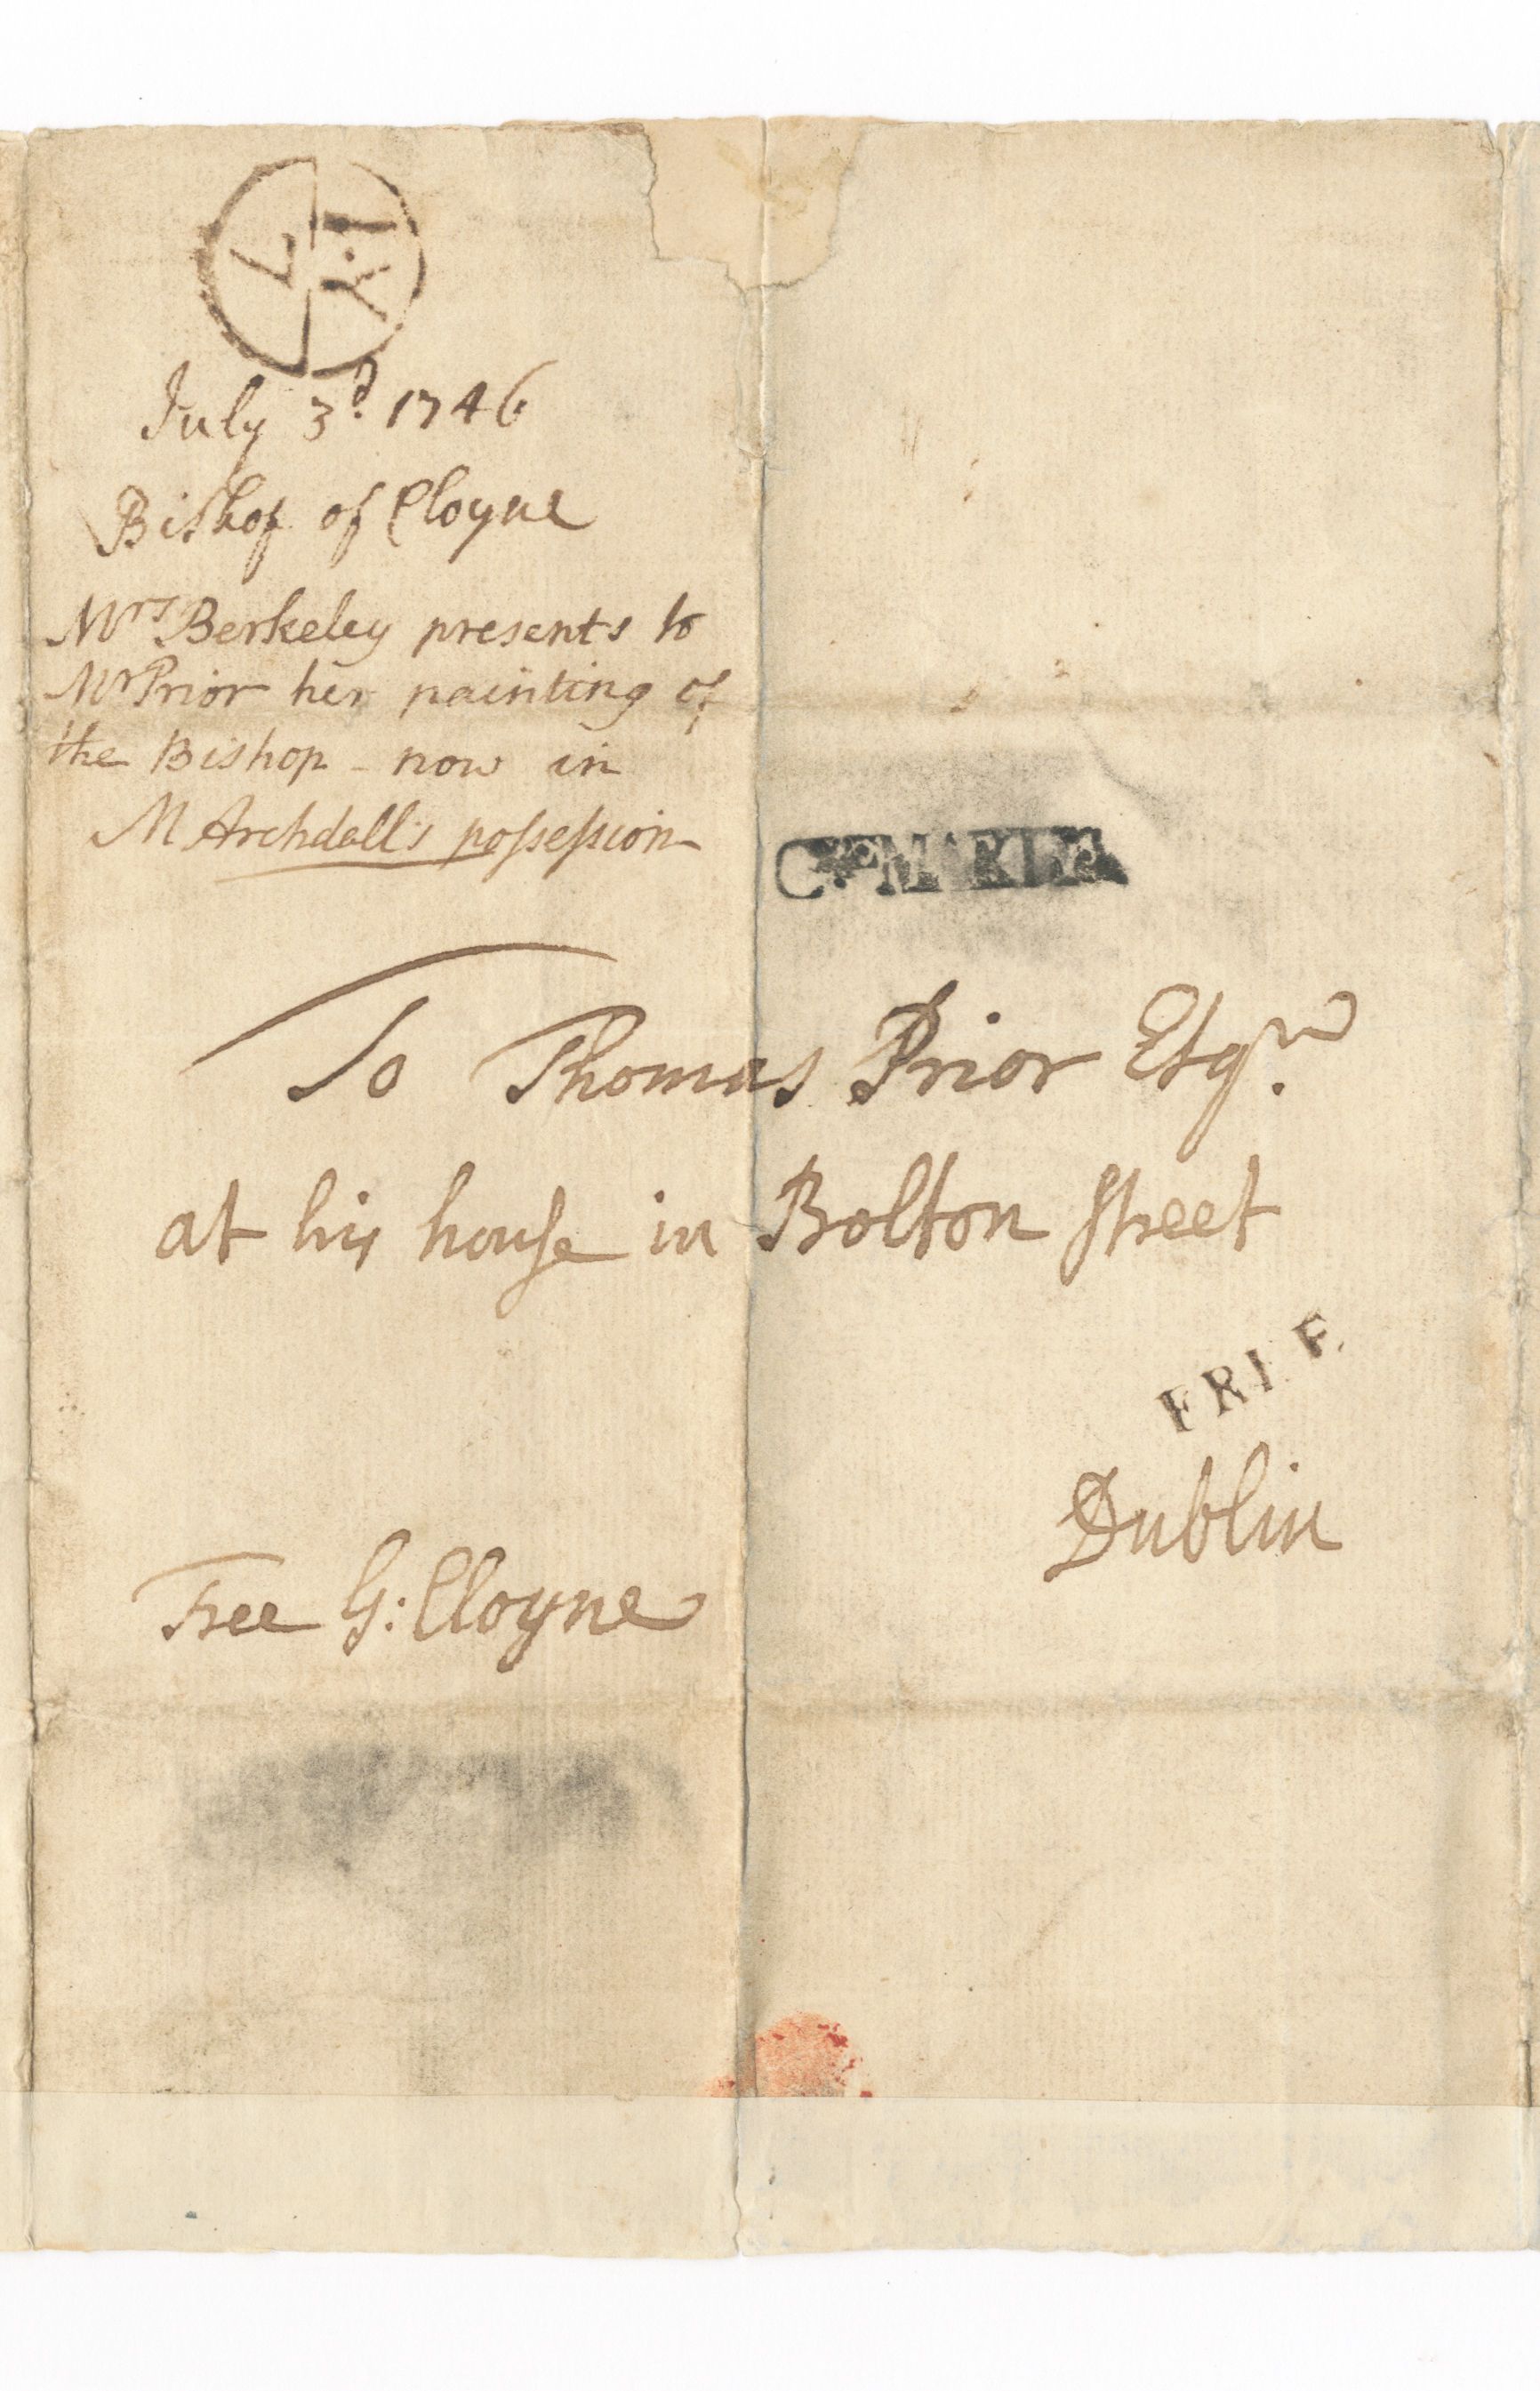 IY
July 3d. 1746
Bishop of Cloyne
Mrs Berkeley presents to
Mr Prior her painting of
the Bishop - now in
M Archdall's possession
To Thomas Prior Esqre.
at his house in Bolton Street
FREE
Dublin
Free G: Cloyne